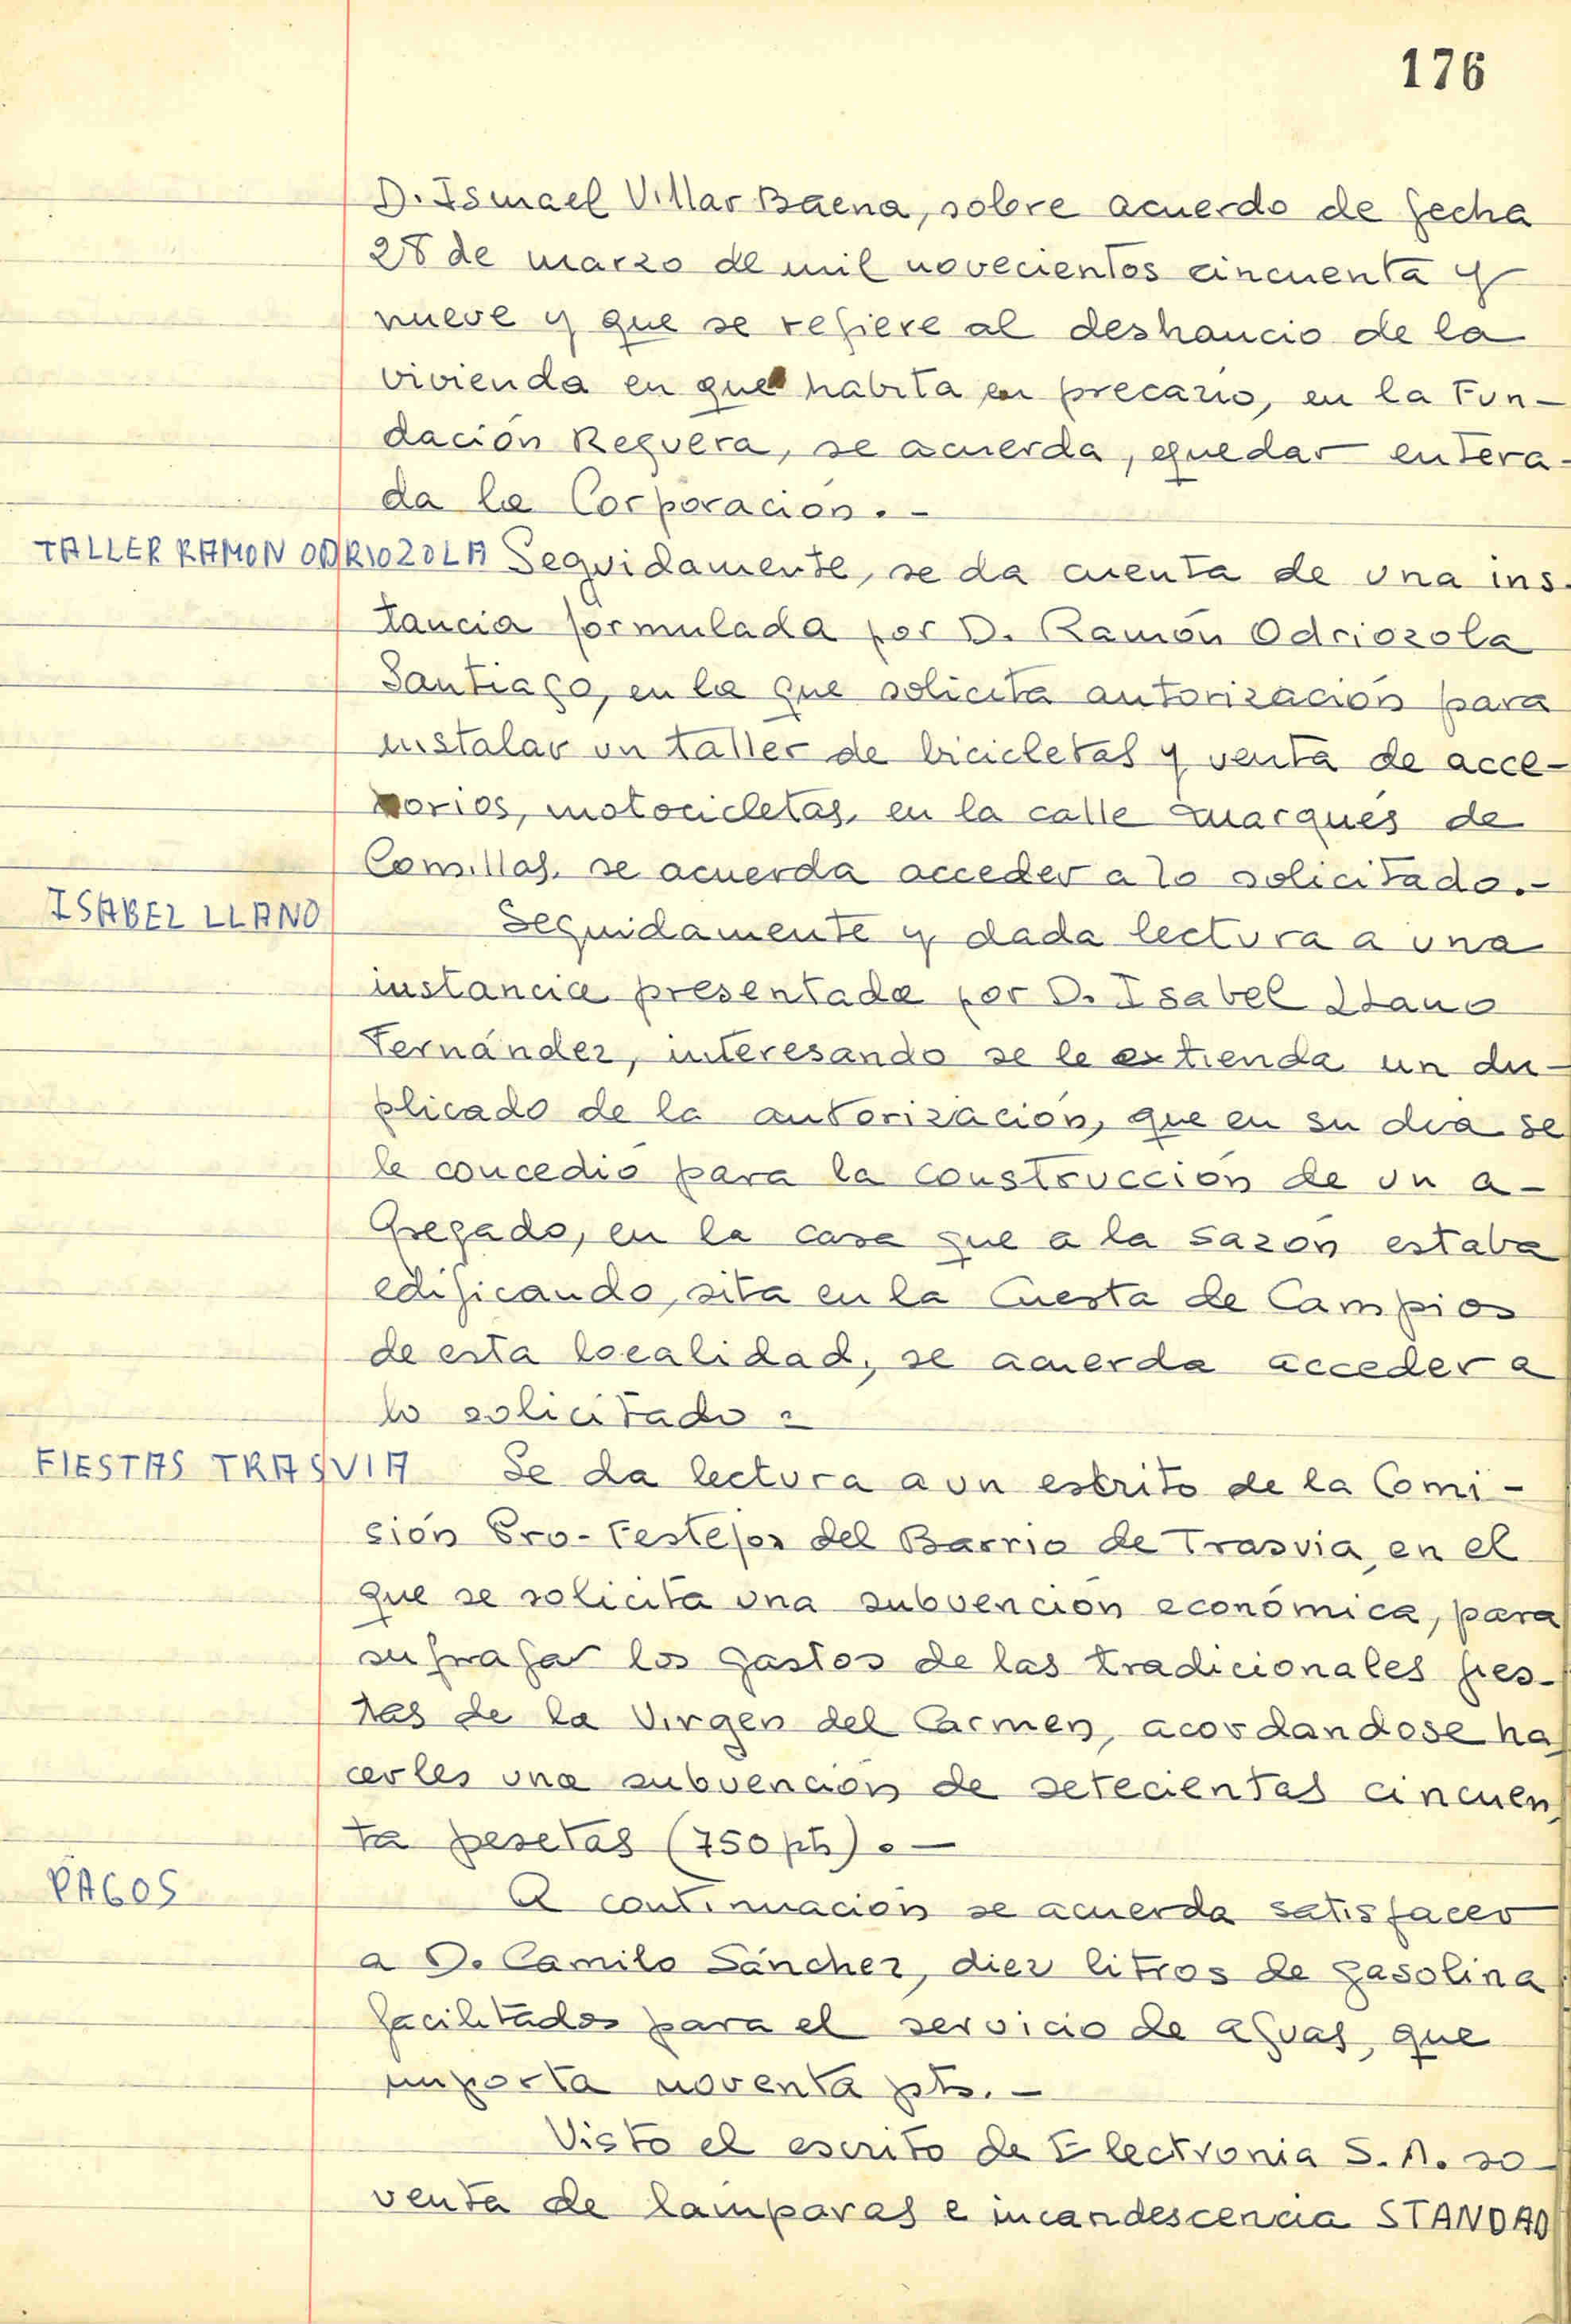 176
D. Ismael Villar Baena, sobre acuerdo de fecha
28 de marzo de mil novecientos cincuenta y
nueve y que se refiere al deshaucio de la
vivienda en que habita en precario, en la Fun-
dación Reguera, se acuerda, quedar entera-
da la Corporación.-
TALLER RAMON ODRIOZOLA Seguidamente, se da cuenta de una ins-
tancia formulada por D. Ramón Odriozola
Santiago, en la que solicita autorización para
instalar un taller de bicicletas y venta de acce-
sorios, motocicletas, en la calle Marqués de
Comillas, se acuerda acceder a lo solicitado.-
ISABEL LLANO Seguidamente y dada lectura a una
instancia presentada por D. Isabel Llano
Fernández, interesando se le extienda un du-
plicado de la autorización, que en su dia se
le concedió para la construcción de un a-
gregado, en la casa que a la sazón estaba
edificando, sita en la Cuesta de Campios
de esta localidad, se acuerda acceder a
lo solicitado =
FIESTAS TRASVIA Se da lectura a un escrito de la Comi-
sión Pro-Festejos del Barrio de Trasvia, en el
que se solicita una subvención económica, para
sufragar los gastos de las tradicionales fies-
tas de la Virgen del Carmen, acordandose ha
cerles una subvención de setecientas cincuen
ta pesetas (750 pts).-
PAGOS A continuación se acuerda satisfacer
a D. Camilo Sánchez, diez litros de gasolina
facilitados para el servicio de aguas, que
importa noventa pts.-
Visto el escrito de Electronia S.A. so
venta de lamparas e incandescencia STANDAD